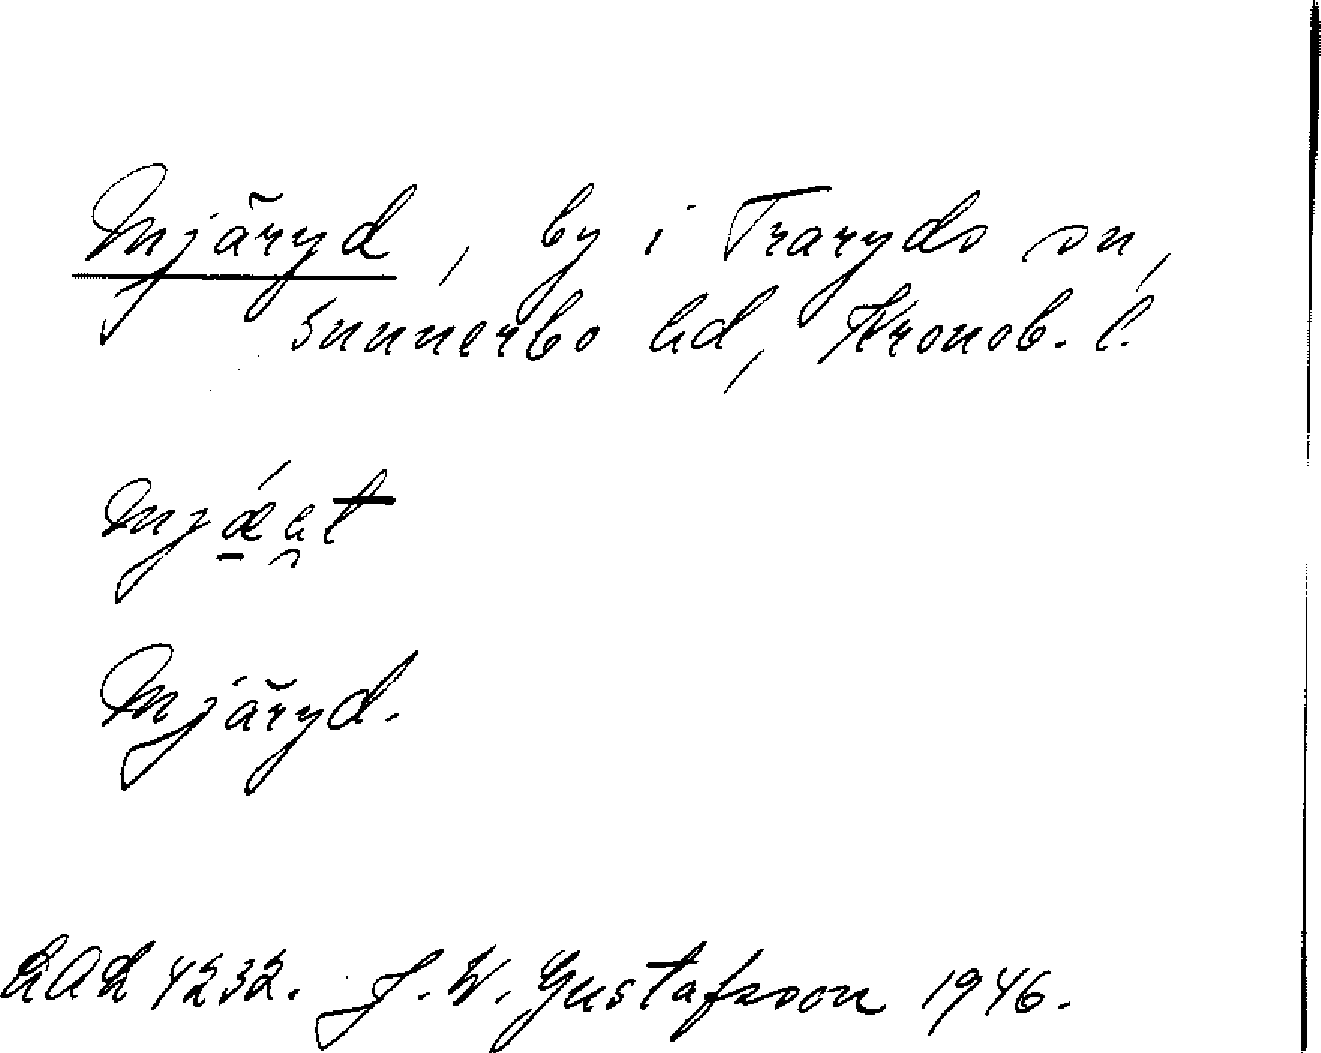 Mjäryd, by i Traryds sn,
Sunnerbo hd, Kronob. l.
Mjäryd.
LAL 4232. J. W. Gustafsson 1946.